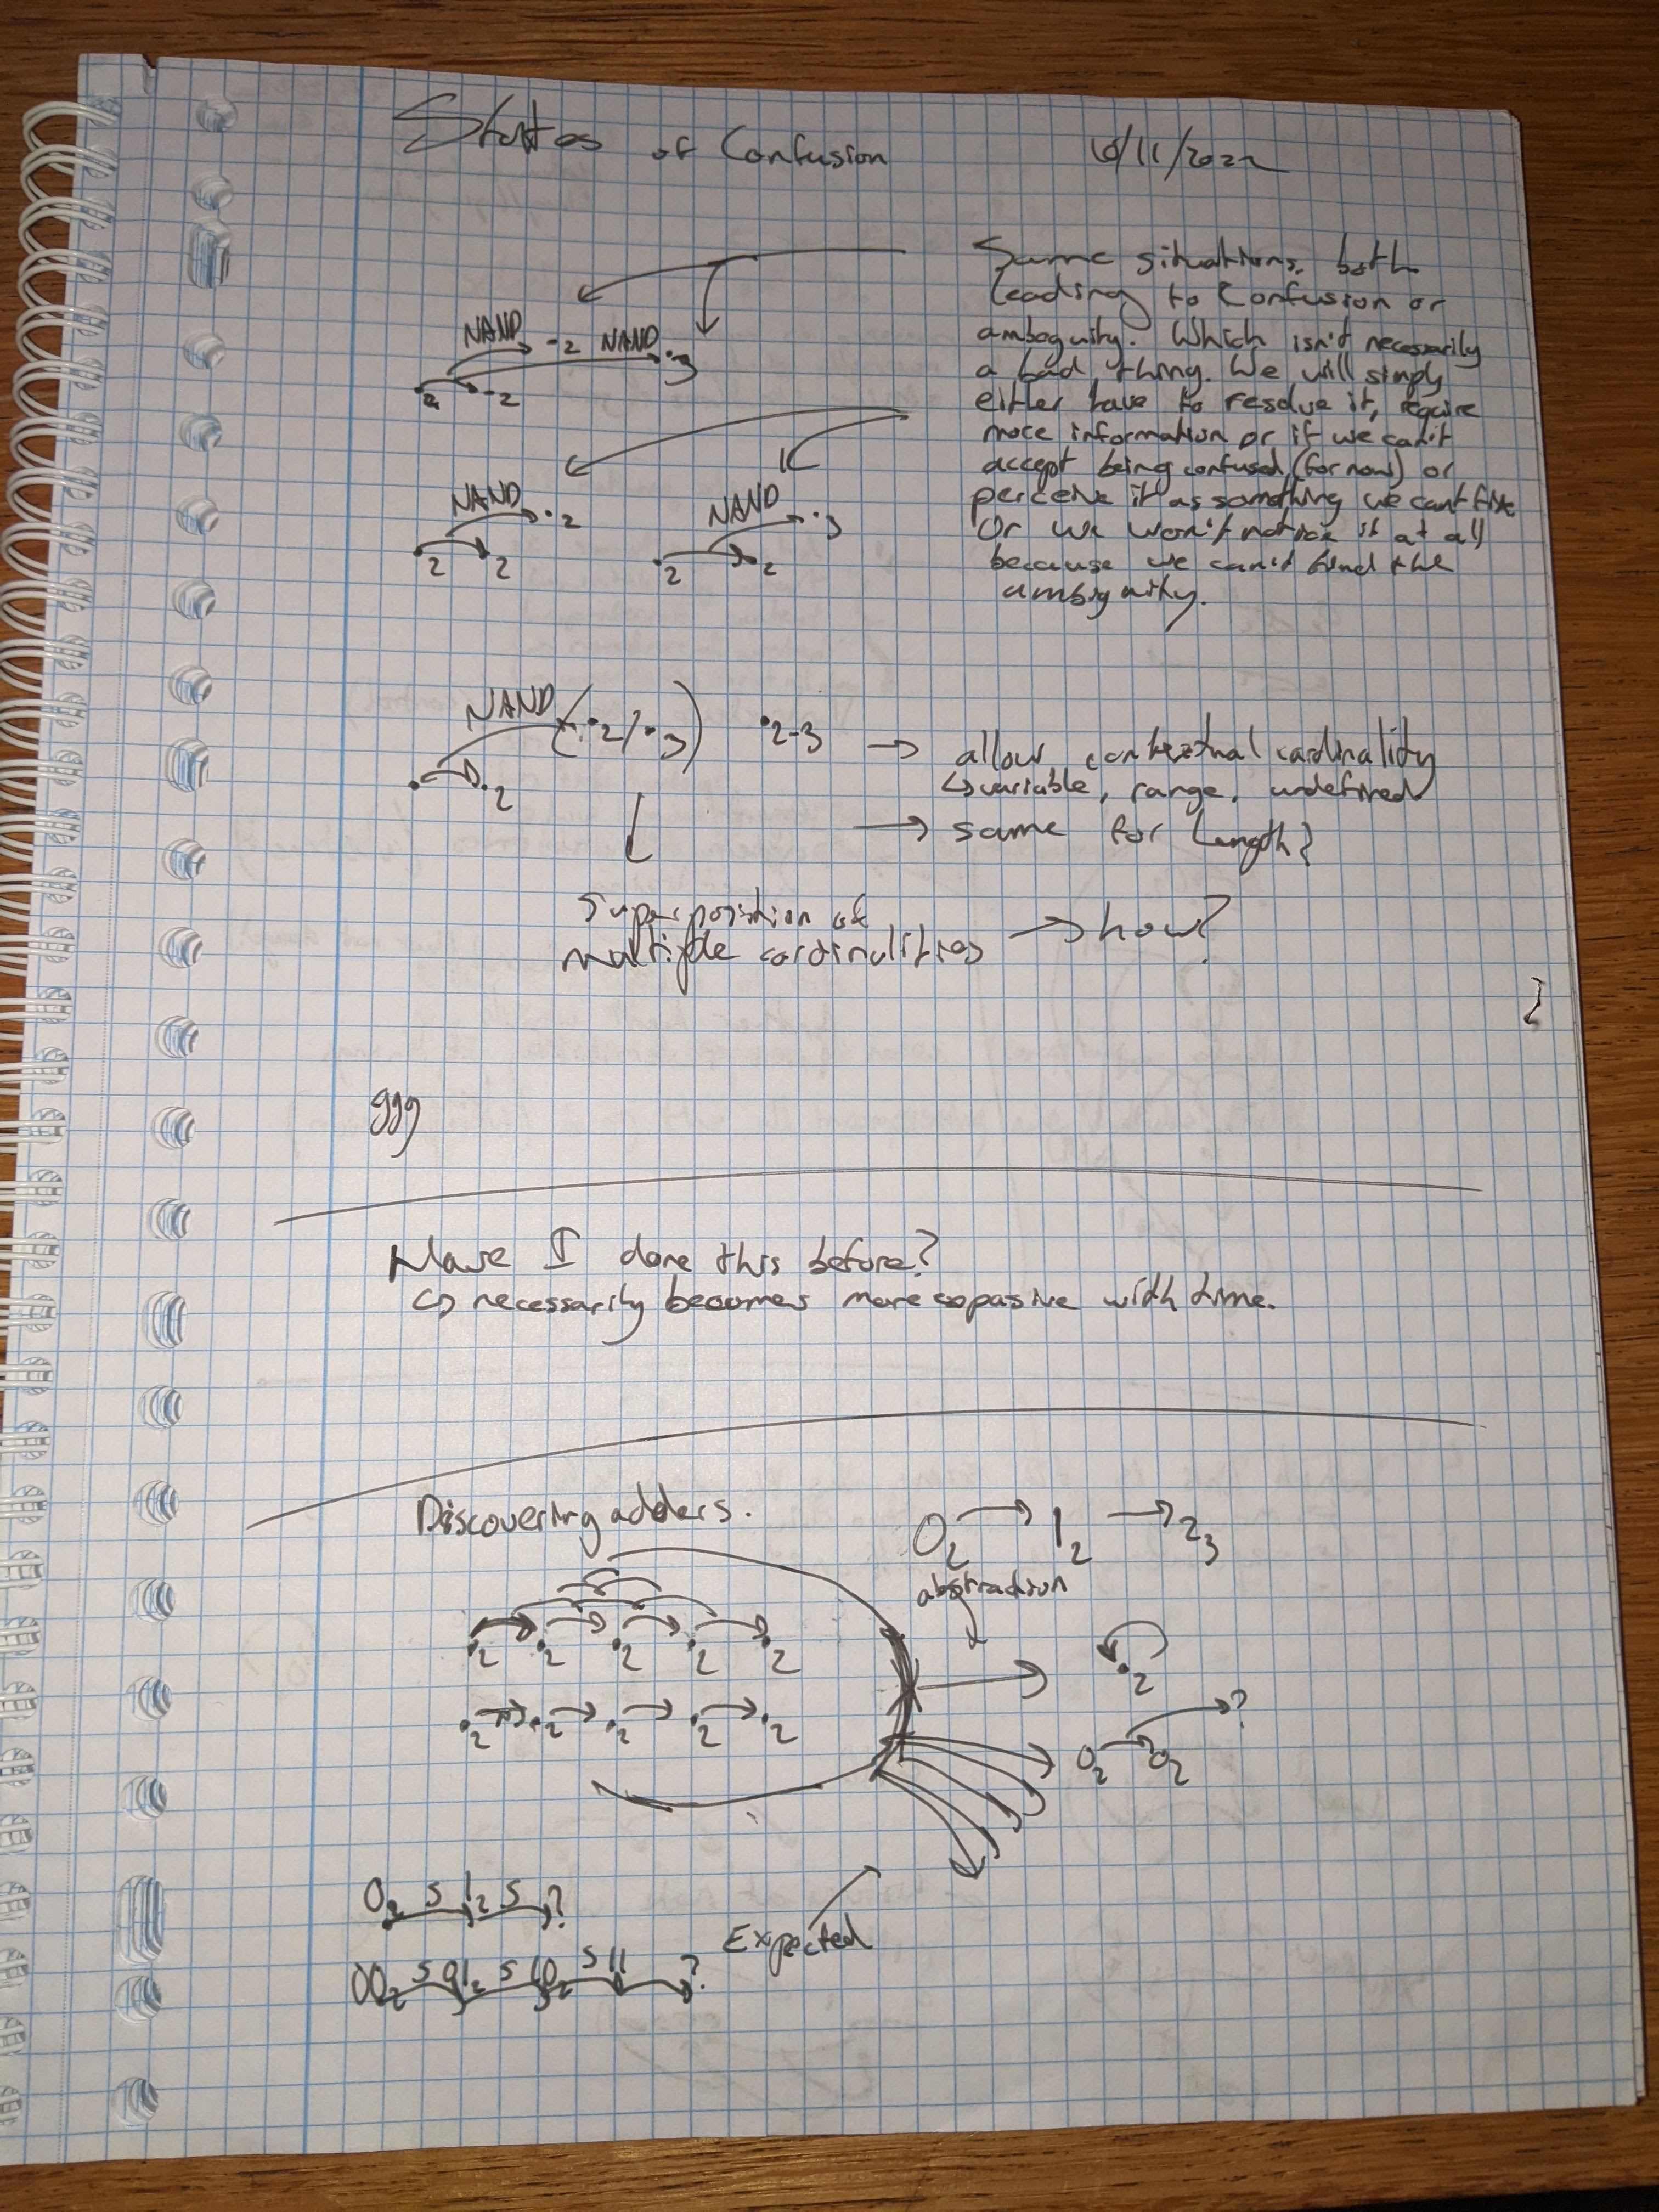 States of Confusion 10/11/2022
Same situations, both
leading to Confusion or
ambiguity. Which isn't necessarily
a bad thing. We will simply
either have to resolve it, require
more information or if we can't
accept being confused (for now) or
perceive it as something we cant fix
Or we won't notice it at all
because we can't find the
ambiguity.
NAND .2 NAND .3
.2 .2
NAND .2 NAND .3
.2 .2 .2 .2
NAND (.2/.3) .2-3 → allow contextual cardinality
. .2 ↳ variable, range, undefined
→ same for length?
Superposition of
multiple cardinalities → how?
ggg
Have I done this before?
↳ necessarily becomes more expasive with time.
Discovering adders. 0₂ → 1₂ → 2₃
abstraction
.2 .2 .2 .2 .2
.2
.2 .2 .2 .2 .2
0₂ 0₂ ?
0₂ S 1₂ S ?
Expected
00₂ S 01₂ S 10₂ S 11 ?